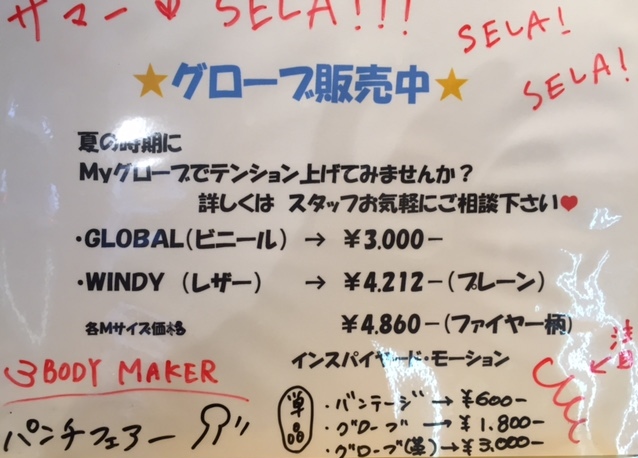 サマー SELA!!!
SELA!
SELA!
★グローブ販売中★
夏の時期に
Myグローブでテンション上げてみませんか?
詳しくは スタッフお気軽にご相談下さい♥
・GLOBAL(ビニール) → ¥3.000-
・WINDY (レザー) → ¥4.212-(プレーン)
各Mサイズ価格 ¥4.860-(ファイヤー柄)
インスパイヤード・モーション
BODY MAKER
パンチフェアー
単品
・バンテージ → ¥600-
・グローブ → ¥1.800-
・グローブ(革) → ¥3.000-